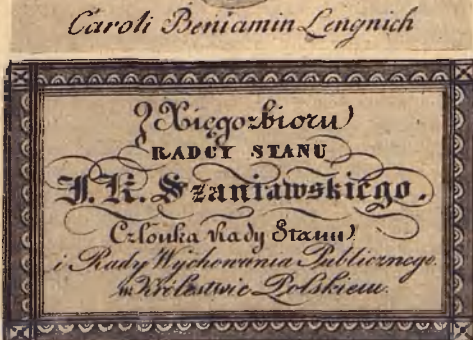 Caroli Beniamin Lengnich
Z Xięgozbioru
RADCY STANU
J. K. Szaniawskiego.
Członka Rady Stanu
i Rady Wychowania Publicznego.
w Królestwie Polskiem.